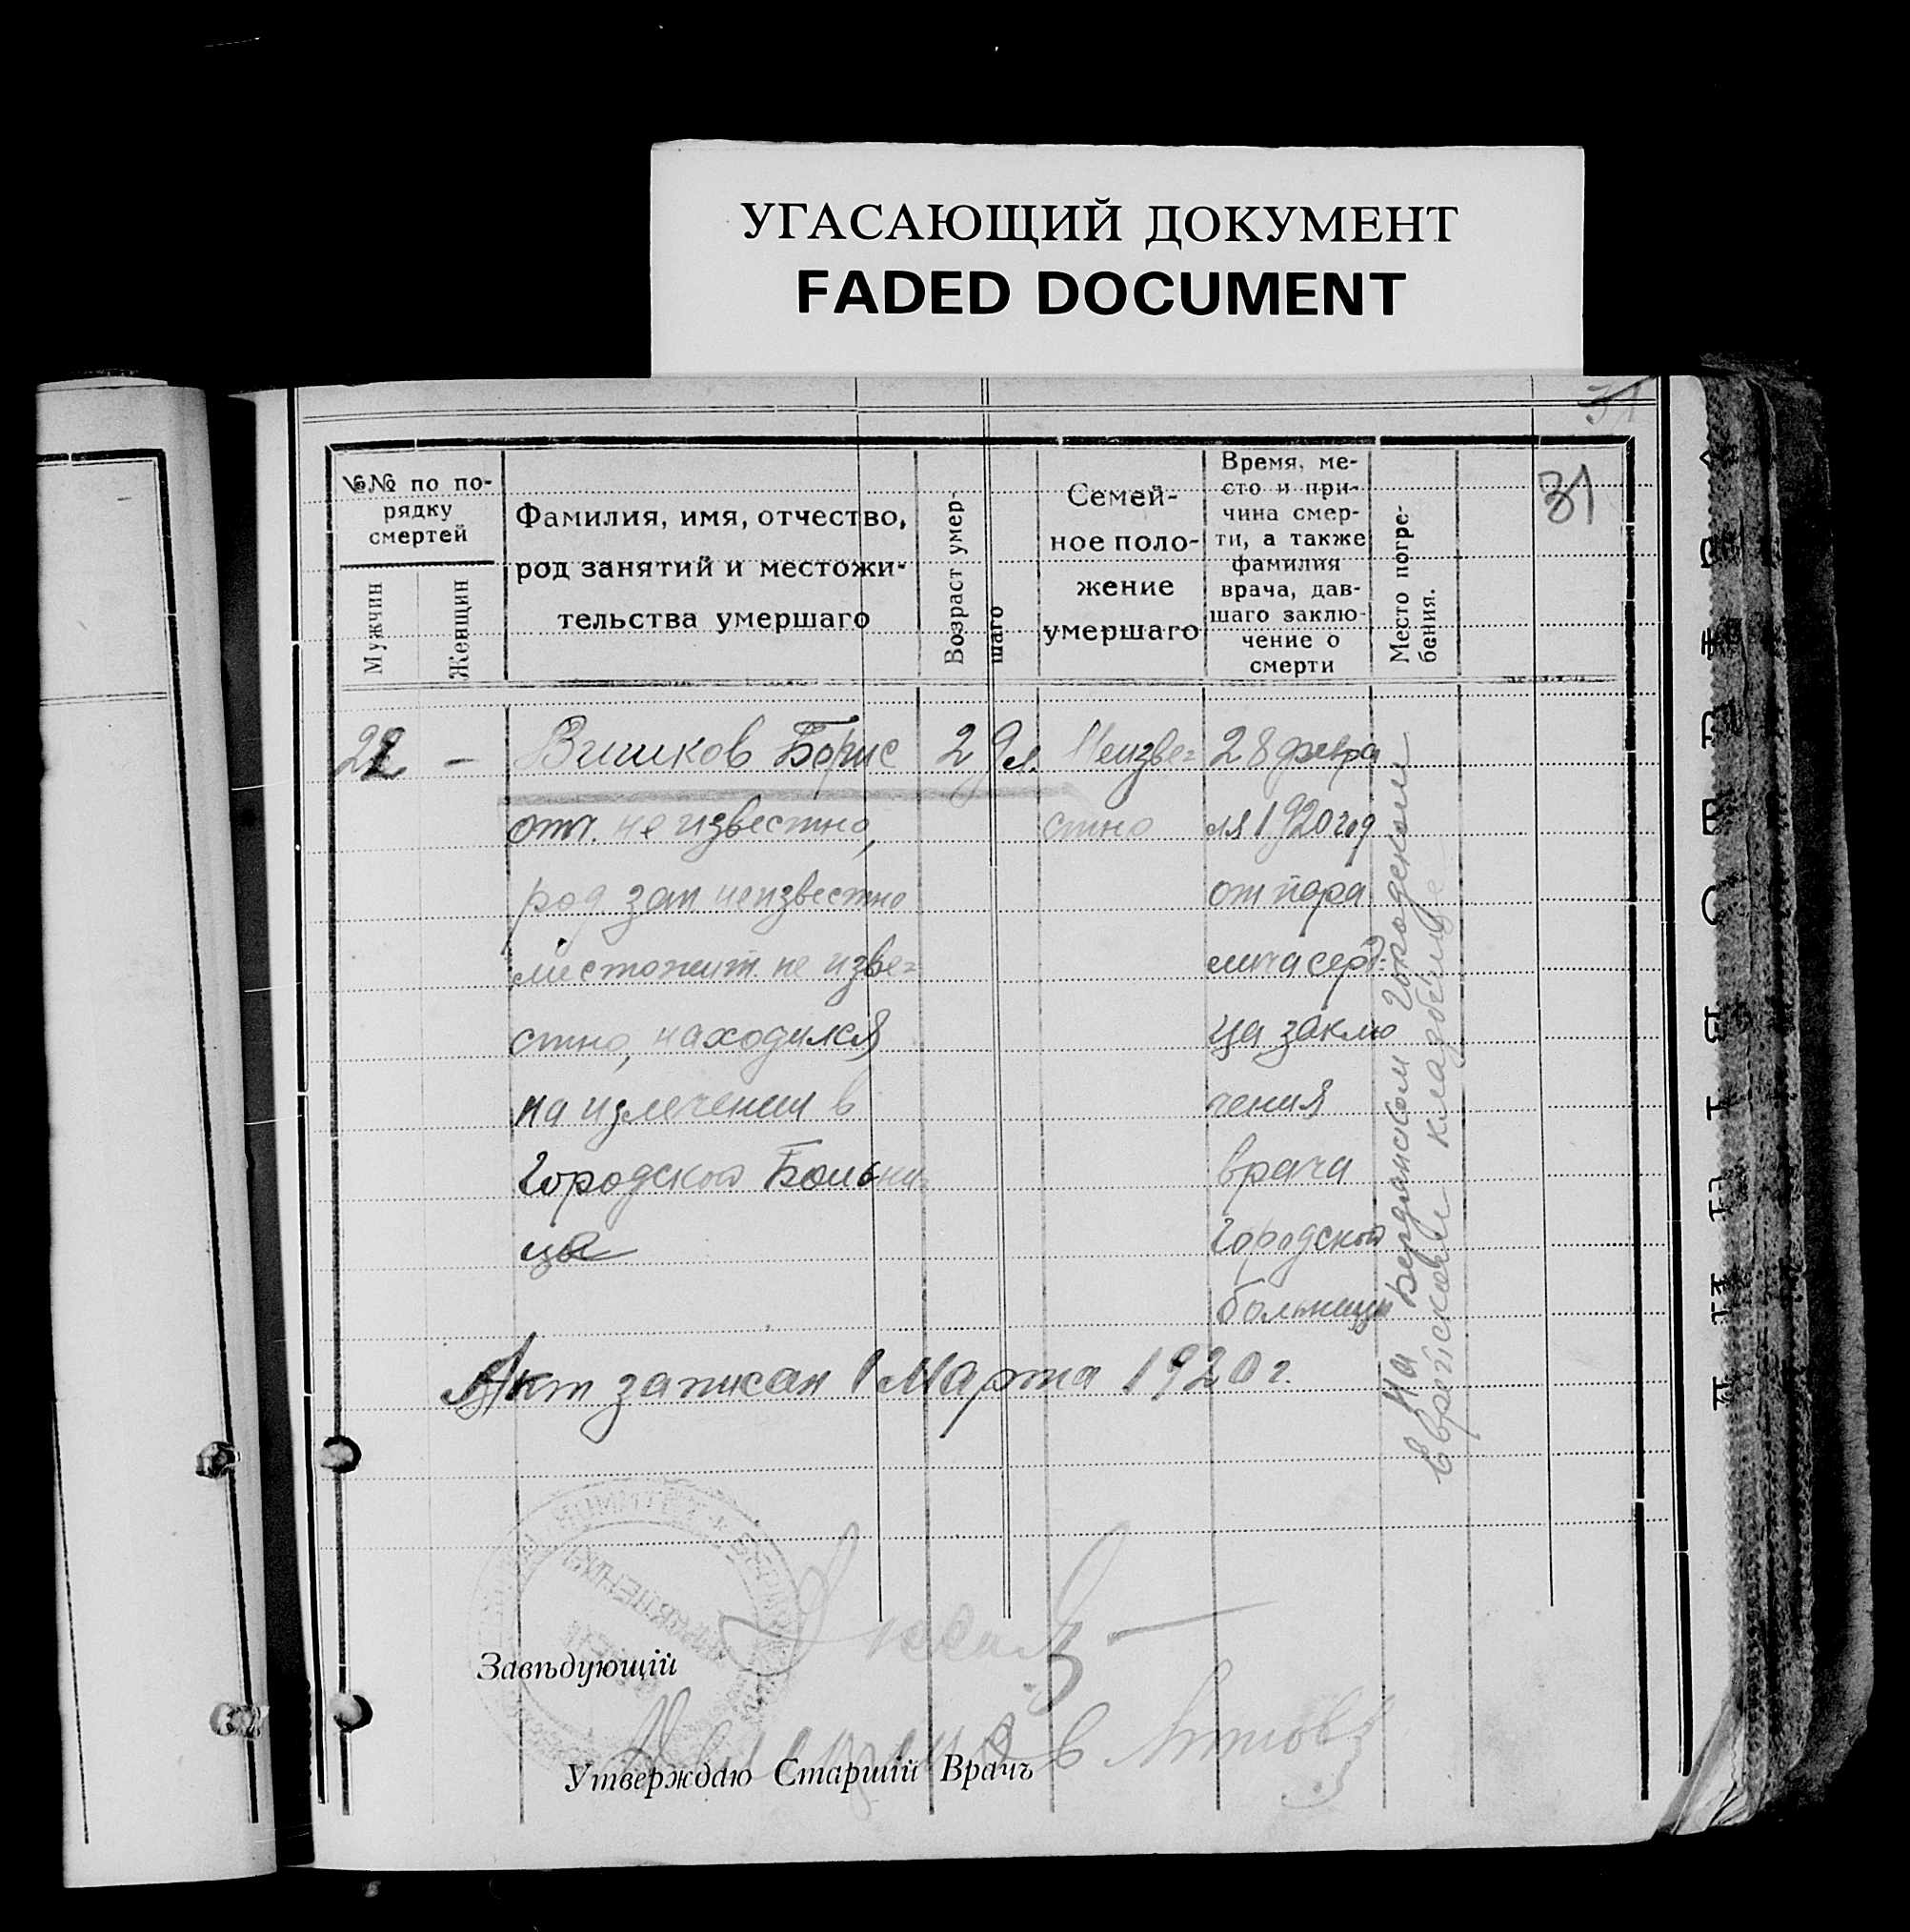 УГАСАЮЩИЙ ДОКУМЕНТ
FADED DOCUMENT
31
31
№№ по по-
рядку
смертей
Мужчин
Женщин
Фамилия, имя, отчество,
род занятий и местожи-
тельства умершаго
Возраст умер-
шаго
Семей-
ное поло-
жение
умершаго
Время, ме-
сто и при-
чина смер-
ти, а также
фамилия
врача, дав-
шаго заклю-
чение о
смерти
Место погре-
бения.
22 —
Борис
отч. не известно,
род зан неизвестно
местожит. не изве=
стно, находился
на излечении в
Городской Больни=
це
29 л.
Неизве=
стно
28 февра
ля 1920 год
от пара
лича серд-
ца заклю
чения
врача
Городской
больницы
На Бердянском Городском
Еврейском кладбище
Акт записан 1 Марта 1920 г.
Завѣдующій
Утверждаю Старшій Врачъ